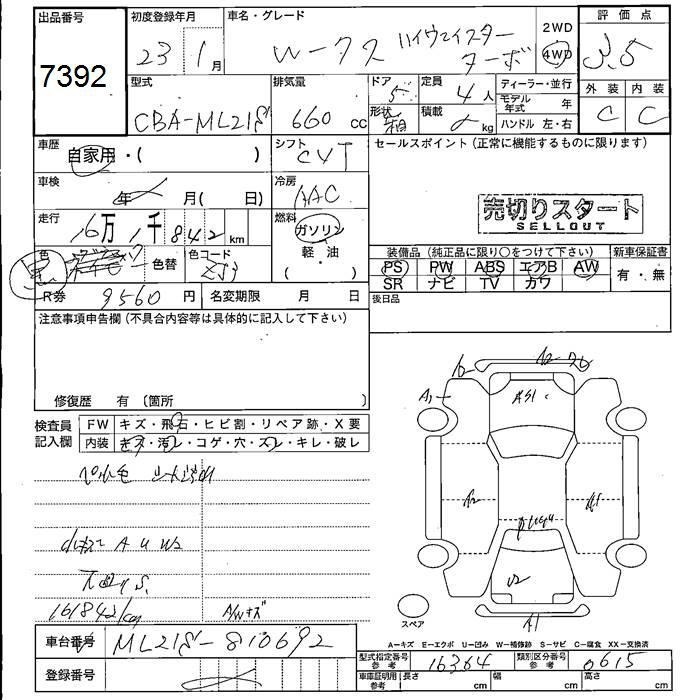 出品番号
7392
初度登録年月
23 1月
車名・グレード
ルークス ハイウェイスター
ターボ
2WD
4WD
評価点
3.5
外装 内装
C C
型式
CBA-ML21S
排気量
660 cc
ドア 5
形状 箱
定員
4人
積載
kg
ディーラー・並行
モデル年式 年
ハンドル 左・右
車歴
自家用・( )
シフト
CVT
セールスポイント(正常に機能するものに限ります)
車検
年 月( 日)
冷房
AAC
売切りスタート
SELLOUT
走行
16万 1千842 km
燃料
ガソリン
軽・油
( ・ )
色
黒
色替
色コード
装備品(純正品に限り〇をつけて下さい)
PS PW ABS エアB AW
SR ナビ TV カワ
新車保証書
有・無
R券 9560 円
名変期限 月 日
後日品
注意事項申告欄(不具合内容等は具体的に記入して下さい)
修復歴 有 〔箇所 〕
検査員
記入欄
FW キズ・飛石・ヒビ割・リペア跡・X要
内装 キズ・汚レ・コゲ・穴・スレ・キレ・破レ
小キズ A U W2
161842km
A/Wキズ
A1
A1
スペア
A1
A-キズ E-エクボ U-凹み W-補修跡 S-サビ C-腐食 XX-交換済
車台番号 ML21S-810692
登録番号
型式指定番号
参考
16364
類別区分番号
参考
0615
車庫証明用
参考
長さ cm 幅 cm 高さ cm